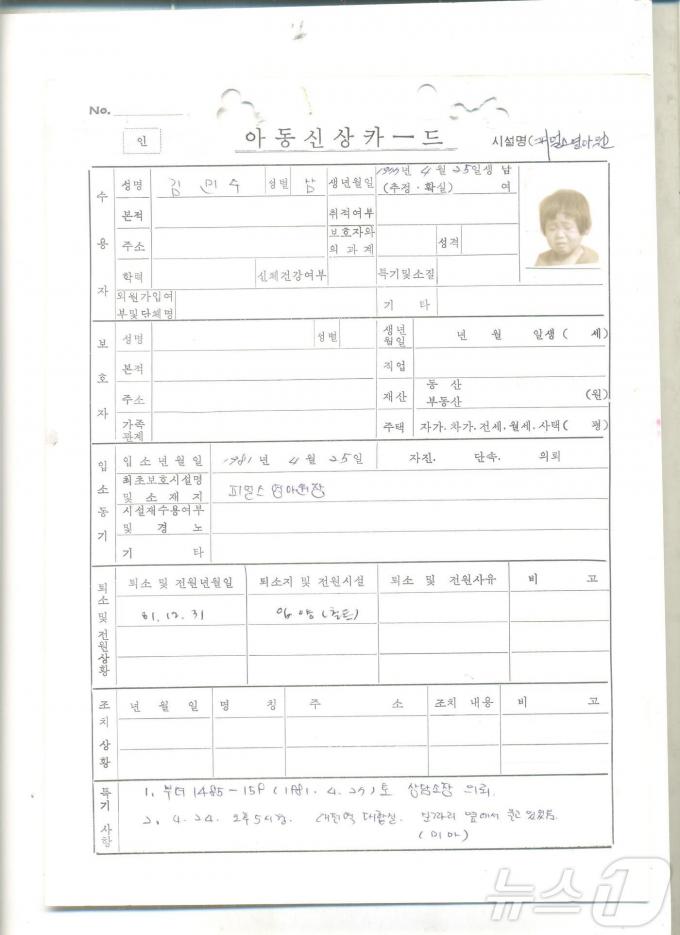 No.
인 아동신상카ー드 시설명(피얼스영아원
수용자 성명 김 민 수 성별 남 생년월일 년 4 월 25일생 남
(추정·확실) 여
본적 취적여부
주소 보호자와의 관계 성격
학력 신체건강여부 특기및소질
외원가입여부및단체명 기 타
보호자 성명 성별 생년월일 년 월 일생 ( 세)
본적 직업
주소 재산 동 산
부동산 (원)
가족관계 주택 자가·차가·전세·월세·사택( 평)
입소동기 입소년월일 1981 년 4 월 25일 자진· 단속· 의뢰
최초보호시설명및소재지 피얼스영아원장
시설재수용여부및 경 노
기 타
퇴소및전원상황 퇴소 및 전원년월일 퇴소지 및 전원시설 퇴소 및 전원사유 비 고
81.12.31 입양(홀트)
조치상황 년 월 일 명 칭 주 소 조치 내용 비 고
특기사항 1. 부녀 1485-158 (1981. 4. 25)로 상담소장 의뢰.
2. 4.24. 오후5시경. 대전역 대합실. 옆에서 울고 있었음
(미아)
뉴스1